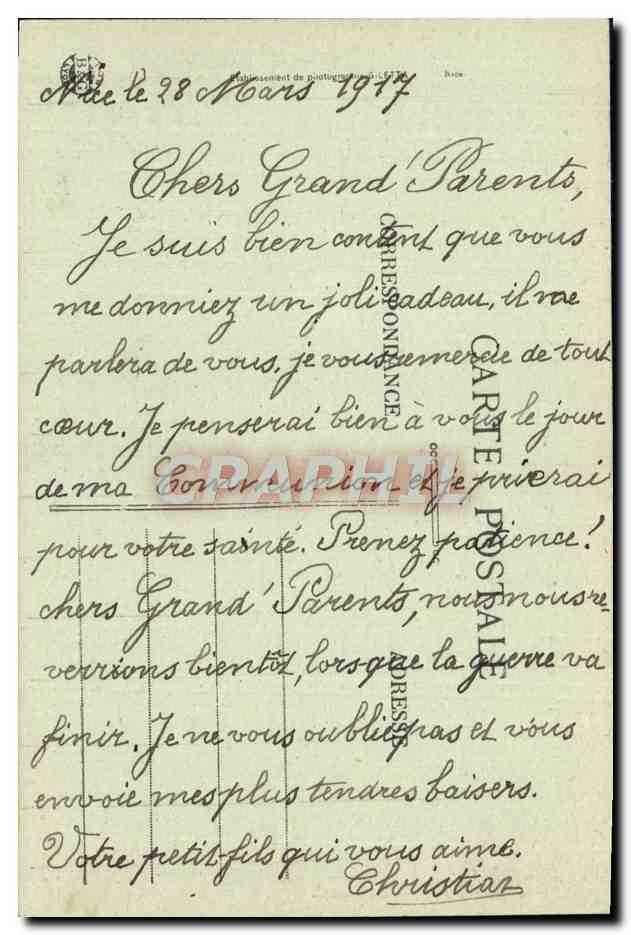 Etablissement de photographie GILETTA Nice
Nice le 28 Mars 1917
Chers Grand' Parents,
Je suis bien content que vous
me donniez un joli cadeau, il me
parlera de vous, je vous remercie de tout
cœur. Je penserai bien à vous le jour
de ma Communion et je prierai
pour votre sainté. Prenez patience!
chers Grand' Parents, nous nous re-
verrions bientôt, lorsque la guerre va
finir. Je ne vous oublie pas et vous
envoie mes plus tendres baisers.
Votre petit-fils qui vous aime.
Christian
CARTE POSTALE
CORRESPONDANCE
ADRESSE
CARAPHIL